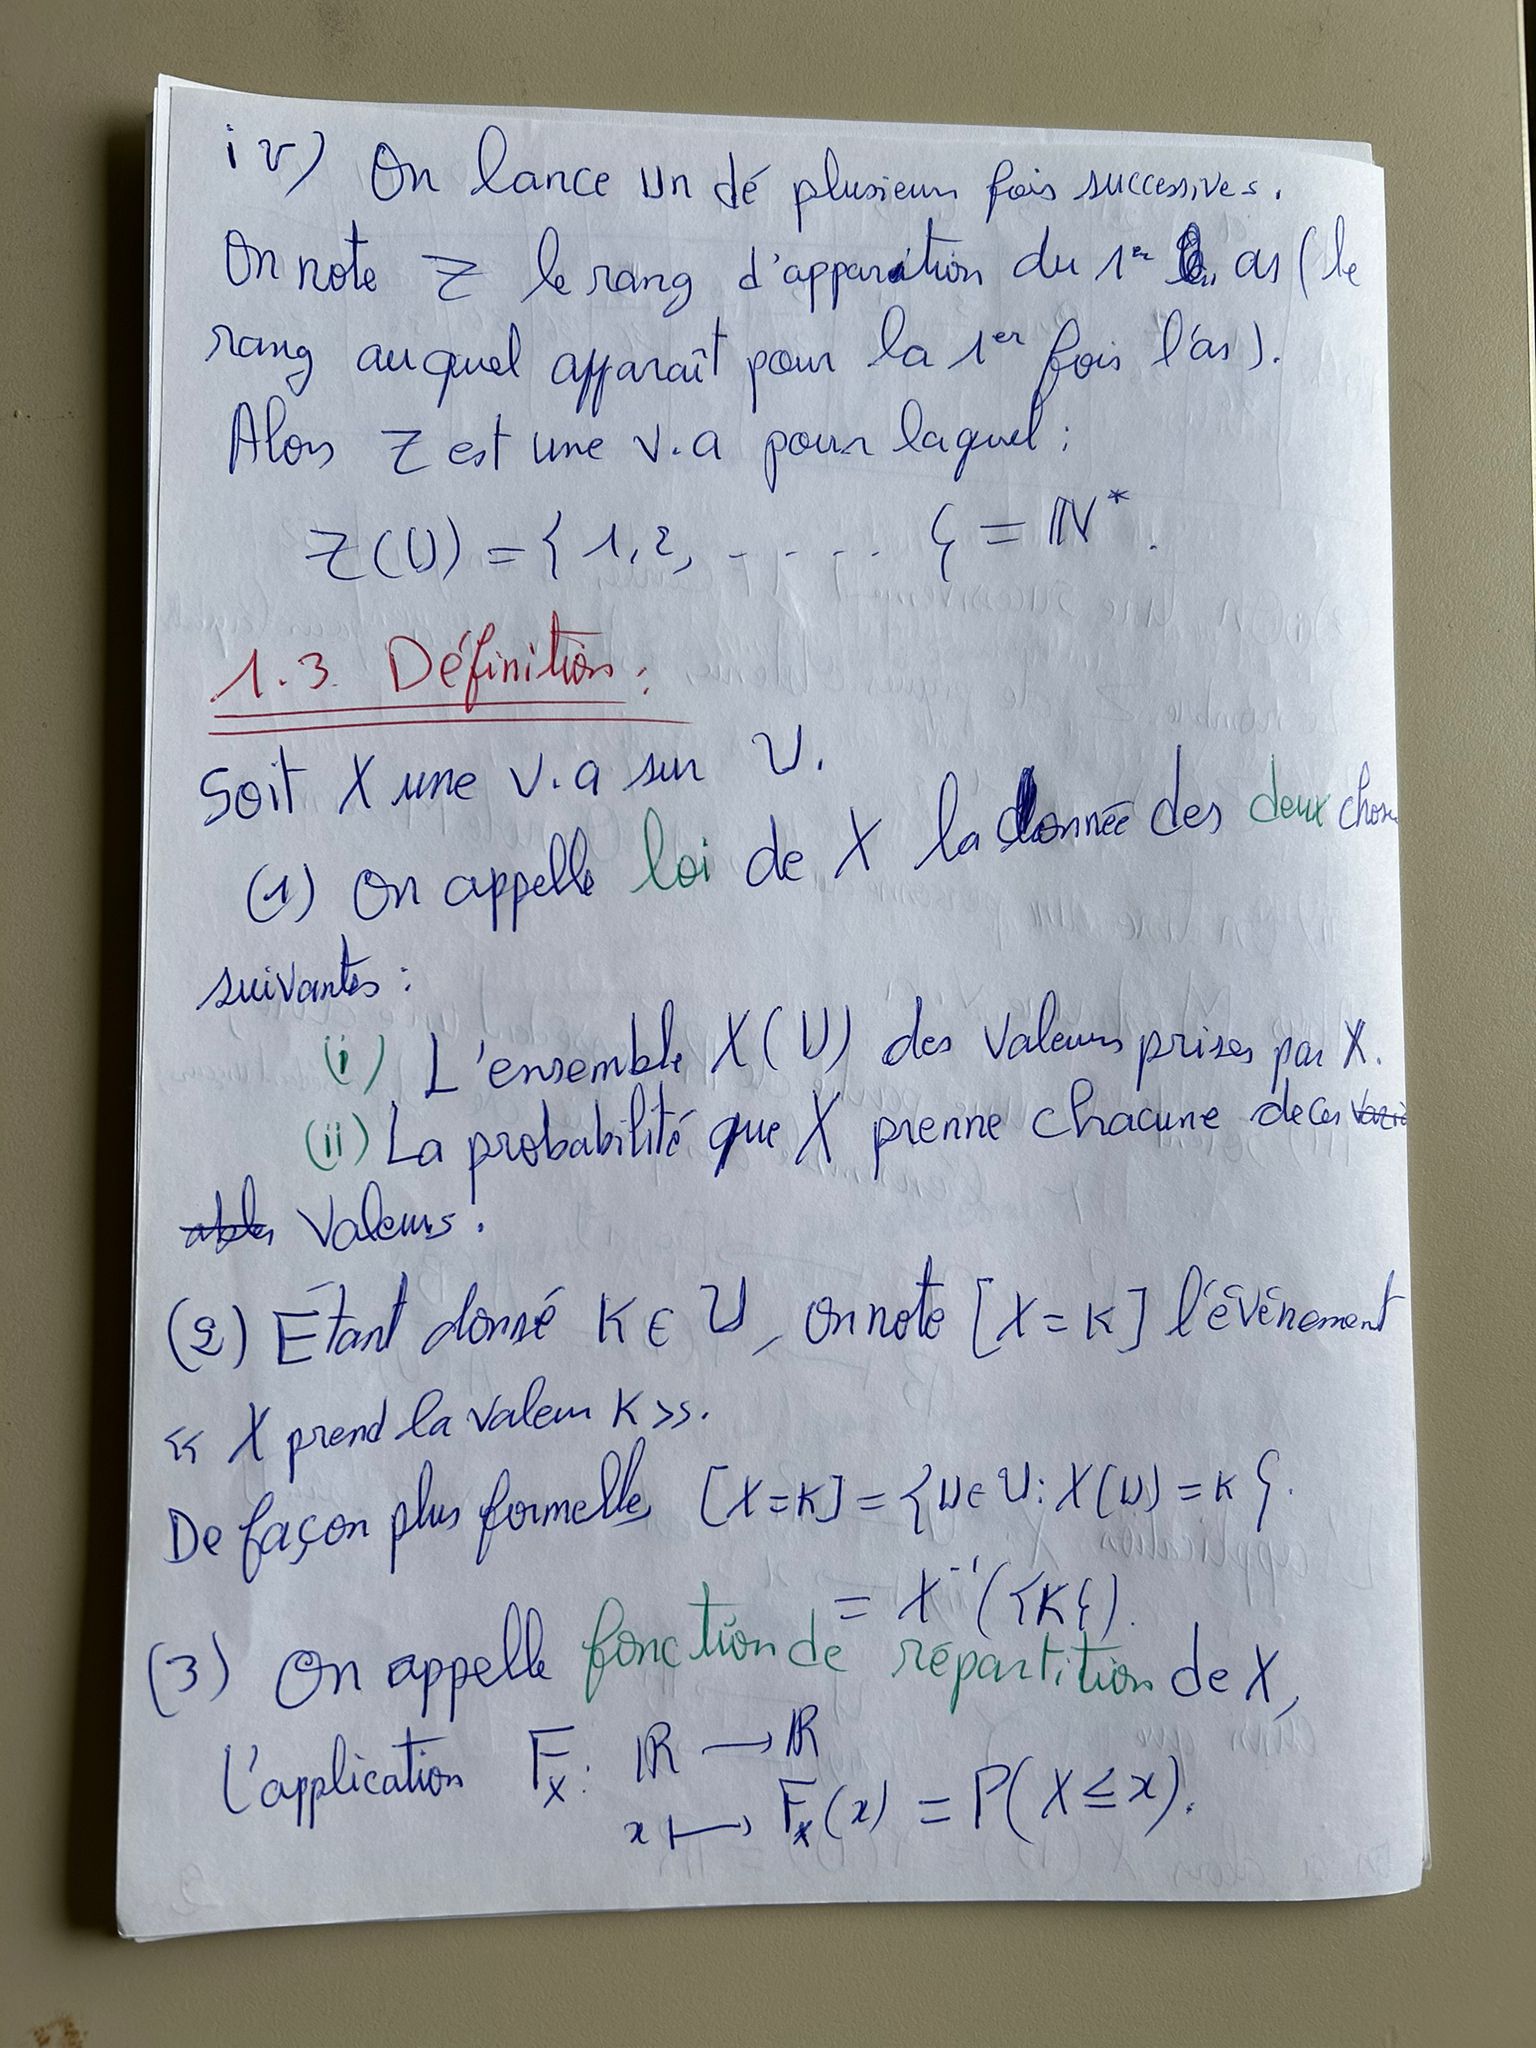 iv) On lance un dé plusieurs fois successives.
On note Z le rang d'apparition du 1er as (le
rang auquel apparaît pour la 1er fois l'as).
Alors Z est une v.a pour laquel :
Z(U) = { 1, 2, ..... } = ℕ*.
1.3. Définition :
Soit X une v.a sur U.
(1) On appelle loi de X la donnée des deux choses
suivantes :
(i) L'ensemble X(U) des valeurs prises par X.
(ii) La probabilité que X prenne chacune de ces vari
ables valeurs.
(2) Étant donné K ∈ U, on note [X = K] l'événement
« X prend la valeur K ».
De façon plus formelle, [X = K] = {u ∈ U : X(u) = K}.
= X⁻¹({K}).
(3) On appelle fonction de répartition de X,
L'application F_X : ℝ → ℝ
x ↦ F_X(x) = P(X ≤ x).